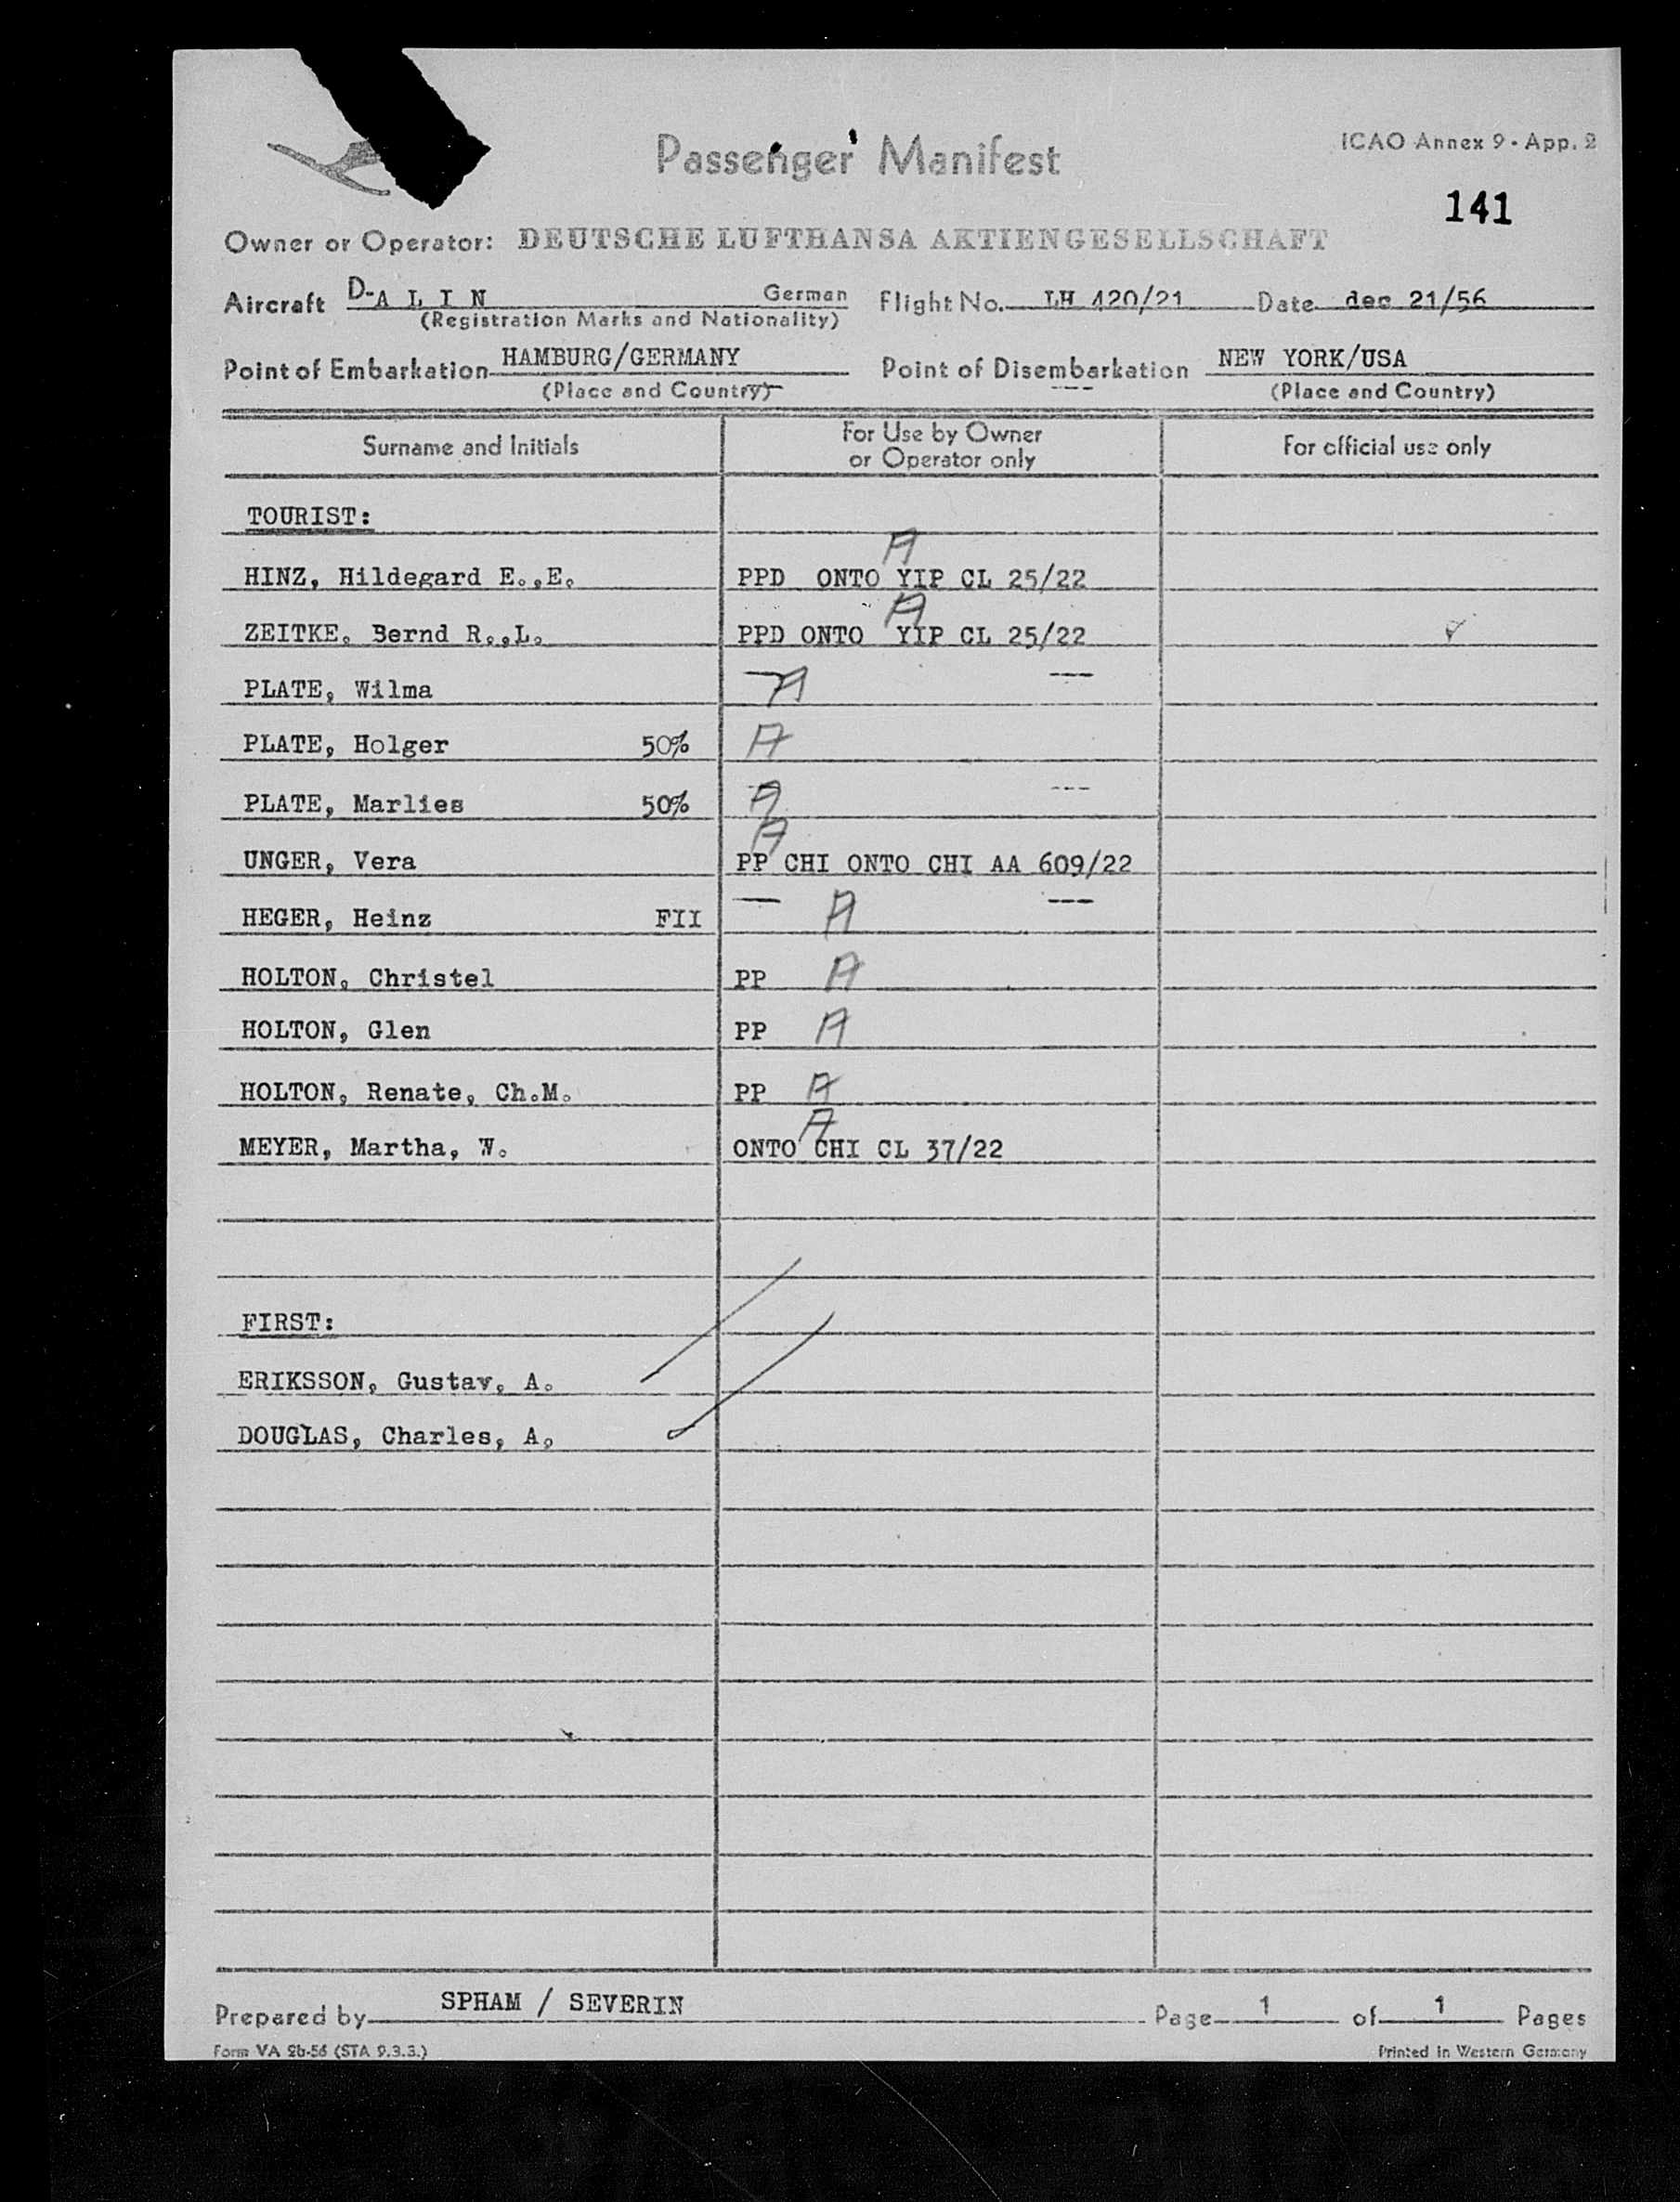 Passenger Manifest
ICAO Annex 9 - App. 2
141
Owner or Operator: DEUTSCHE LUFTHANSA AKTIENGESELLSCHAFT
Aircraft D-A L I N German Flight No. LH 420/21 Date dec 21/56
(Registration Marks and Nationality)
Point of Embarkation HAMBURG/GERMANY Point of Disembarkation NEW YORK/USA
(Place and Country) --- (Place and Country)
Surname and Initials For Use by Owner or Operator only For official use only
TOURIST:
A
HINZ, Hildegard E.,E. PPD ONTO YIP CL 25/22
A
ZEITKE, Bernd R.,L. PPD ONTO YIP CL 25/22
PLATE, Wilma — A ---
PLATE, Holger 50% A
PLATE, Marlies 50% A ---
A
UNGER, Vera PP CHI ONTO CHI AA 609/22
HEGER, Heinz FII — A ---
HOLTON, Christel PP A
HOLTON, Glen PP A
HOLTON, Renate, Ch.M. PP A
A
MEYER, Martha, W. ONTO CHI CL 37/22
FIRST:
ERIKSSON, Gustav, A.
DOUGLAS, Charles, A,
Prepared by SPHAM / SEVERIN Page 1 of 1 Pages
Form VA 2b-56 (STA 9.3.3.) Printed in Western Germany